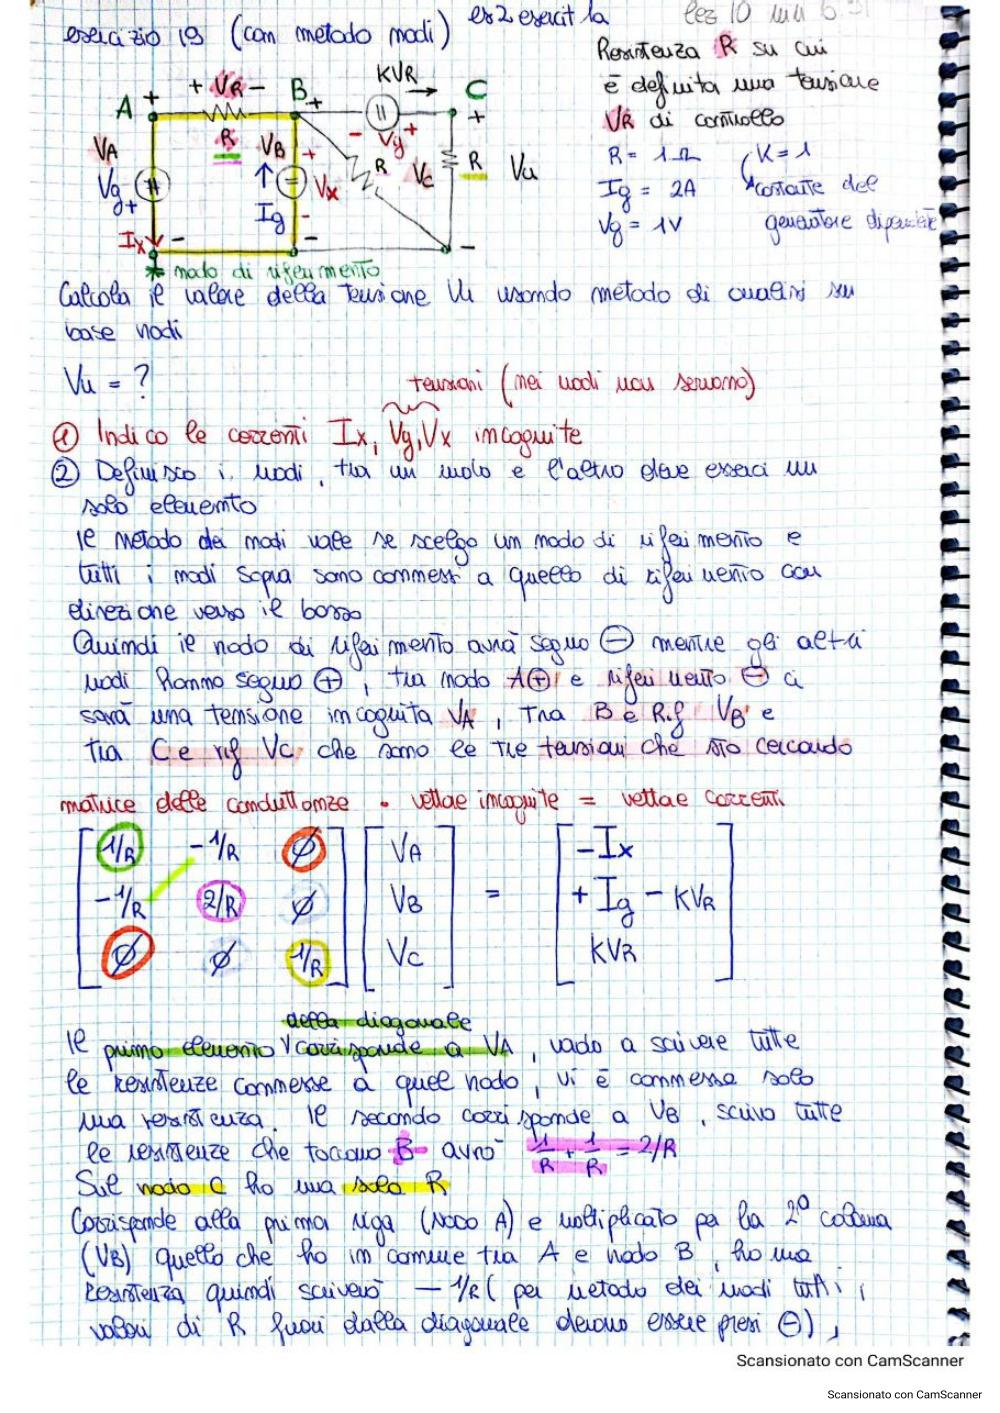 es2 esercit la
lez 10 min 6.51
esercizio 19 (con metodo nodi)
Resistenza R su cui
è definita una tensione
VR di controllo
R = 1 Ω
K = 1
Ig = 2A
costante del
Vg = 1V
generatore dipendente
+ VR -
B
+
KVR
C
A
+
R
VB
+
- Vy +
+
VA
Vg
+
Vx
R
VC
R
Vu
Ig
Ix
-
-
-
-
* nodo di riferimento
Calcola il valore della tensione Vu usando metodo di analisi su
base nodi
Vu = ?
tensioni (nei nodi non servono)
① Indico le correnti Ix, Vy, Vx incognite
② Definisco i nodi, tra un nodo e l'altro deve esserci un
solo elemento
Il metodo dei nodi vale se scelgo un nodo di riferimento e
tutti i nodi sopra sono connessi a quello di riferimento con
direzione verso il basso
Quindi il nodo di riferimento avrà segno ⊖ mentre gli altri
nodi hanno segno ⊕, tra nodo A⊕ e riferimento ⊖ ci
sarà una tensione incognita VA, Tra B e Rif VB e
tra C e rif VC che sono le tre tensioni che sto cercando
matrice delle conduttanze • vettore incognite = vettore correnti
1/R -1/R ∅ VA -Ix
-1/R 2/R ∅ VB = + Ig - KVR
∅ ∅ 1/R VC KVR
della diagonale
Il primo elemento √ corrisponde a VA, vado a scrivere tutte
le resistenze connesse a quel nodo, vi è connessa solo
una resistenza. Il secondo corrisponde a VB, scrivo tutte
le resistenze che toccano B avrò 1/R + 1/R = 2/R
Sul nodo C ho una sola R
Corrisponde alla prima riga (NODO A) e moltiplicato per la 2° colonna
(VB) quello che ho in comune tra A e nodo B, ho una
resistenza quindi scriverò - 1/R ( per metodo dei nodi tutti i
valori di R fuori dalla diagonale devono essere presi ⊖),
Scansionato con CamScanner
Scansionato con CamScanner